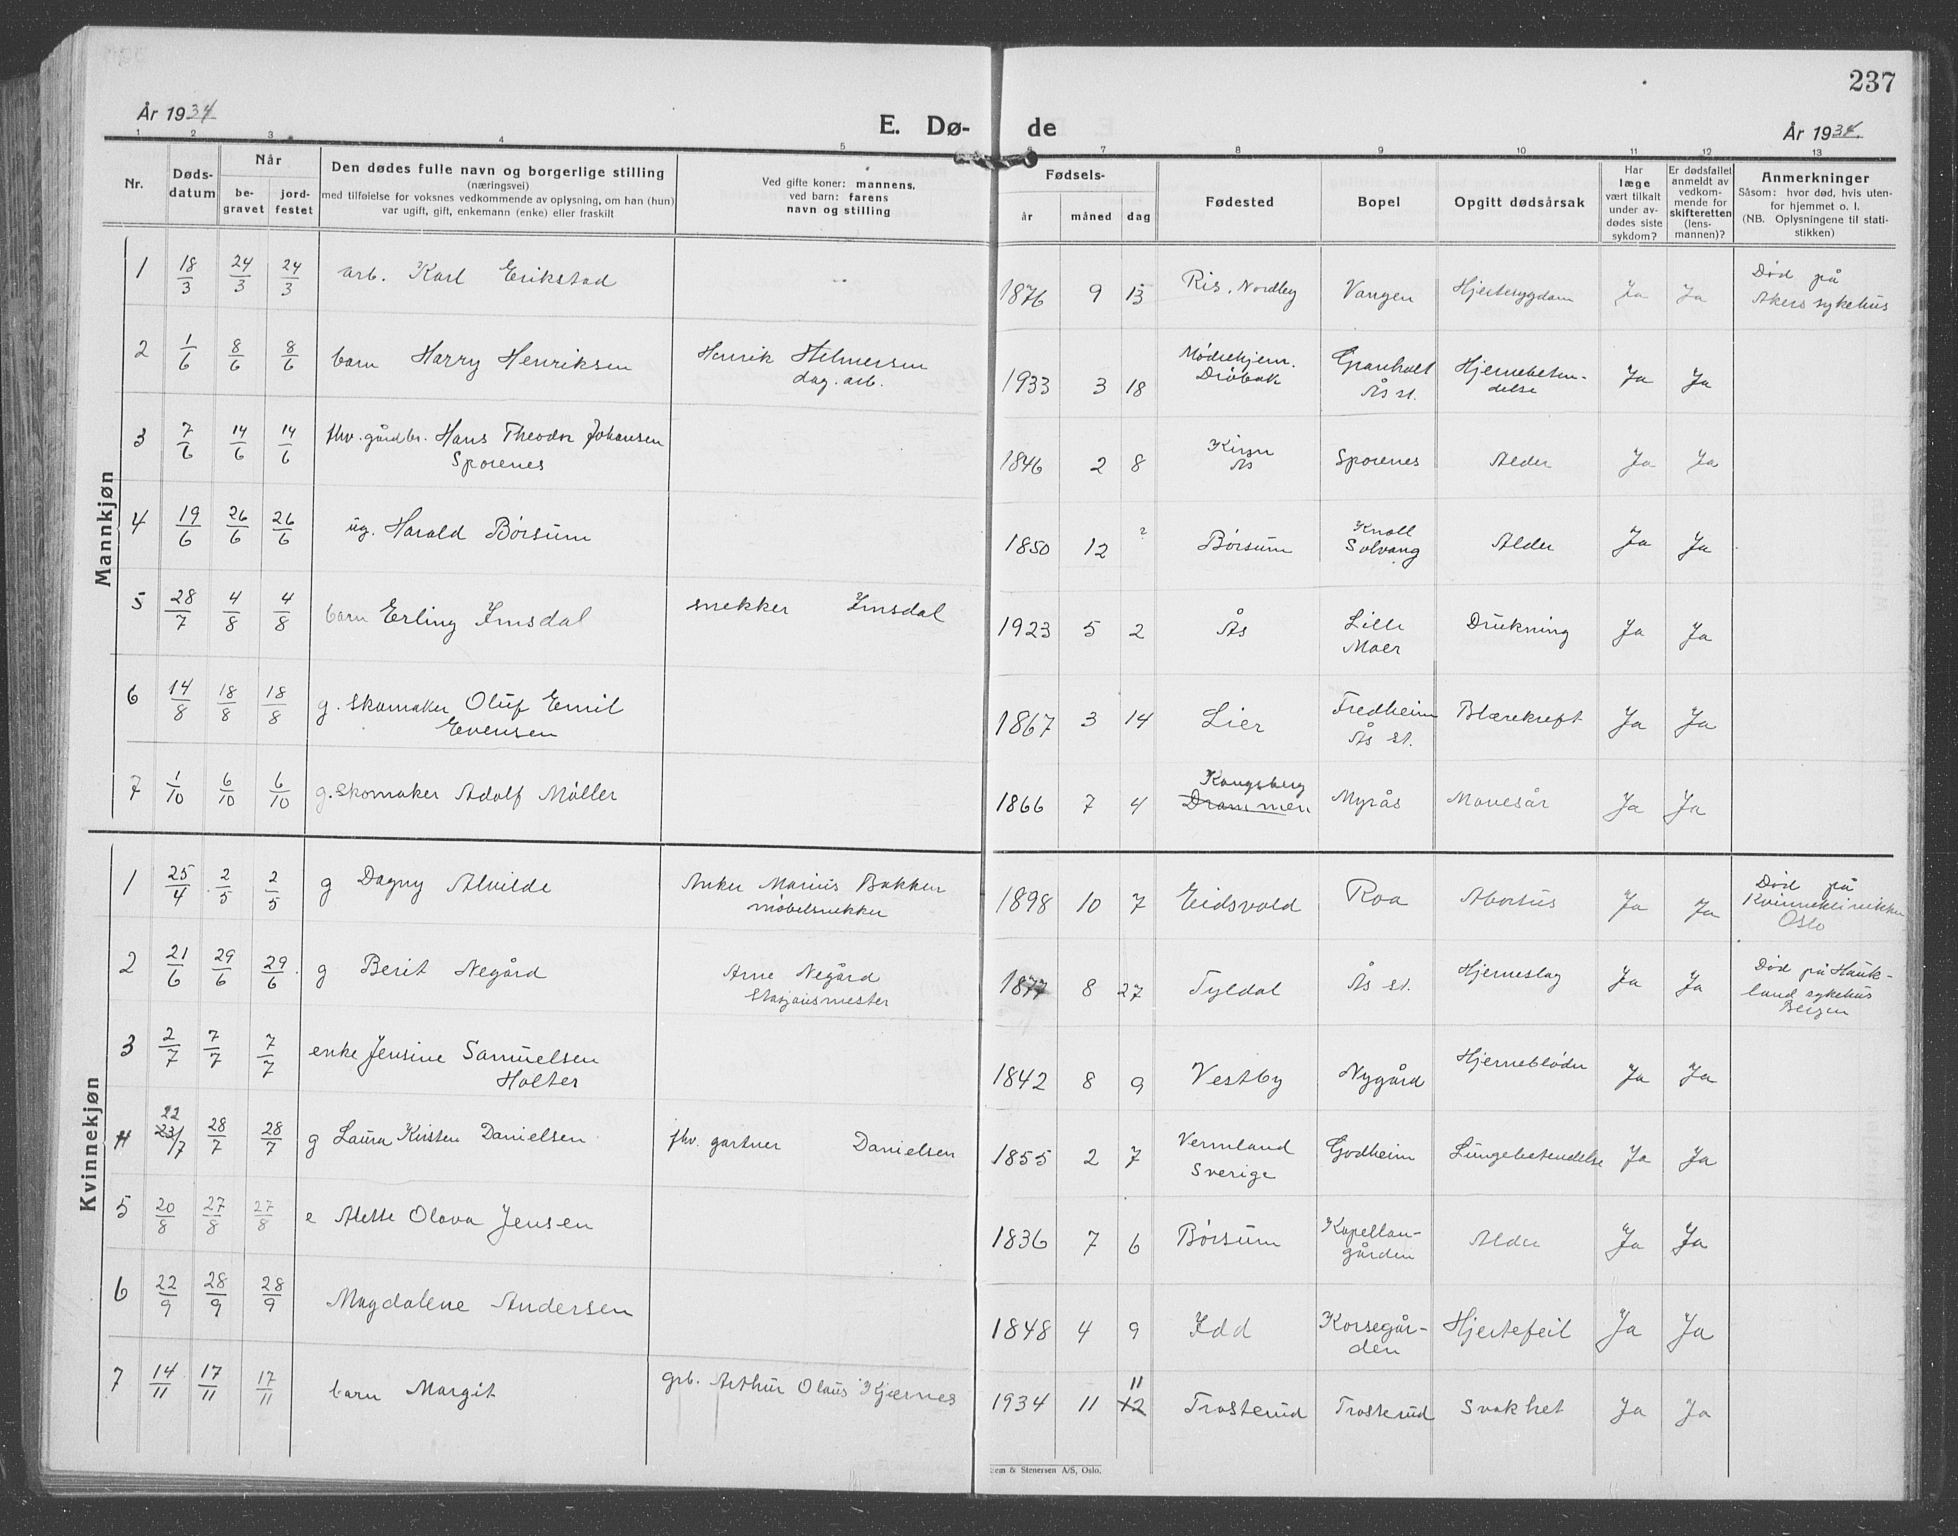 237
År 1934
E. Dø-
de
År 1934.
1 2 3 4 5 6 7 8 9 10 11 12 13
Nr.
Døds-
datum
Når
be-
gravet
jord-
festet
Den dødes fulle navn og borgerlige stilling
(næringsvei)
med tilføielse for voksnes vedkommende av oplysning, om han (hun)
var ugift, gift, enkemann (enke) eller fraskilt
Ved gifte koner: mannens,
ved barn: farens
navn og stilling
Fødsels-
år måned dag
Fødested
Bopel
Opgitt dødsårsak
Har
læge
vært tilkalt
under av-
dødes siste
sykdom?
Er dødsfallet
anmeldt av
vedkom-
mende for
skifteretten
(lens-
mannen)?
Anmerkninger
Såsom: hvor død, hvis uten-
for hjemmet o. l.
(NB. Oplysningene til stati-
stikken)
Mannkjøn
1 18/3 24/3 24/3 arb. Karl Erikstad 1876 9 13 Ris, Nordby Vangen Hjertesygdom Ja Ja Død på
Akers sykehus
2 1/6 8/6 8/6 barn Harry Henriksen Henrik Helmersen
dag. arb.
1933 3 18 Mødrehjem.
Drøbak
Granholt
Ås st.
Hjernebeten-
delse
Ja Ja
3 7/6 14/6 14/6 fhv. gårdbr. Hans Theodor Johansen
Sporenes
1846 2 8
Ås
Sporenes Alder Ja Ja
4 19/6 26/6 26/6 ug. Harald Børsum 1850 12 ? Børsum Knoll
Solvang
Alder Ja Ja
5 28/7 4/8 4/8 barn Erling Imsdal snekker Imsdal 1923 5 2 Ås Lille
Moer
Drukning Ja Ja
6 14/8 18/8 18/8 g. skomaker Oluf Emil
Evensen
1867 3 14 Lier Fredheim
Ås st.
Blærekreft Ja Ja
7 1/10 6/10 6/10 g. skomaker Adolf Møller 1866 7 4 Kongsberg
Drammen
Myrås Mavesår Ja Ja
Kvinnekjøn
1 25/4 2/5 2/5 g Dagny Alvilde Anker Marius Bakken
møbelsnekker
1898 10 7 Eidsvold Roa Abortus Ja Ja Død på
Kvinneklinikken
Oslo
2 21/6 29/6 29/6 g Berit Negård Arne Negård
Stasjonsmester
1877 8 27 Tyldal Ås st. Hjerneslag Ja Ja Død på Hauk-
land sykehus
Bergen
3 2/7 7/7 7/7 enke Jensine Samuelsen
Holter
1842 8 9 Vestby Nygård Hjerneblødn Ja Ja
4 22
23/7 28/7 28/7 g Laura Kirsten Danielsen fhv. gartner Danielsen 1855 2 7 Vermland
Sverige
Godheim Lungebetendelse Ja Ja
5 20/8 27/8 27/8 e Alette Olava Jensen 1836 7 6 Børsum Kapellan-
gården
Alder Ja Ja
6 22/9 28/9 28/9 Magdalene Andersen 1848 4 9 Idd Korsegår-
den
Hjertefeil Ja Ja
7 14/11 17/11 17/11 barn Margit grb. Arthur Olaus Kjærnes 1934 11 11
12 Trosterud Trosterud Svakhet Ja Ja
Sem & Stenersen A/S, Oslo.